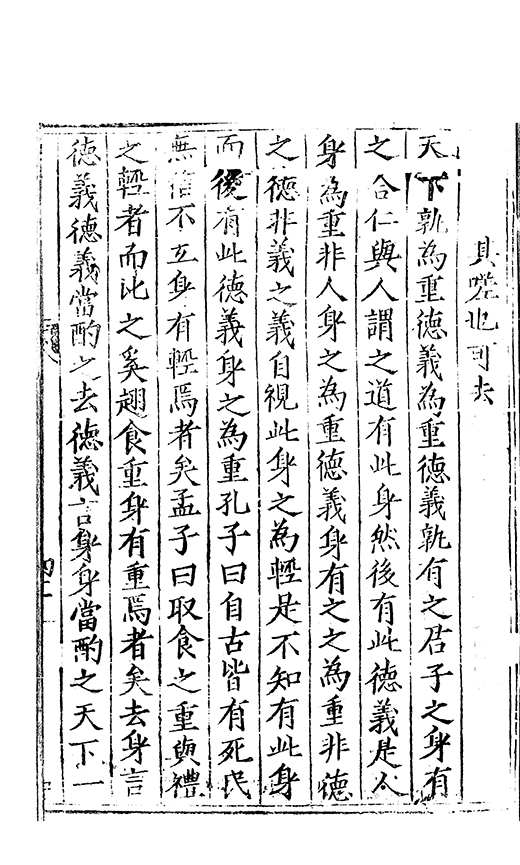 其嗟也可去
天下孰為重德義為重德義孰有之君子之身有
之合仁與人謂之道有此身然後有此德義是人
身為重非人身之為重德義身有之之為重非德
之德非義之義自視此身之為輕是不知有此身
而後有此德義身之為重孔子曰自古皆有死民
無信不立身有輕焉者矣孟子曰取食之重與禮
之輕者而比之奚翅食重身有重焉者矣去身言
德義德義當酌之去德義言身身當酌之天下一